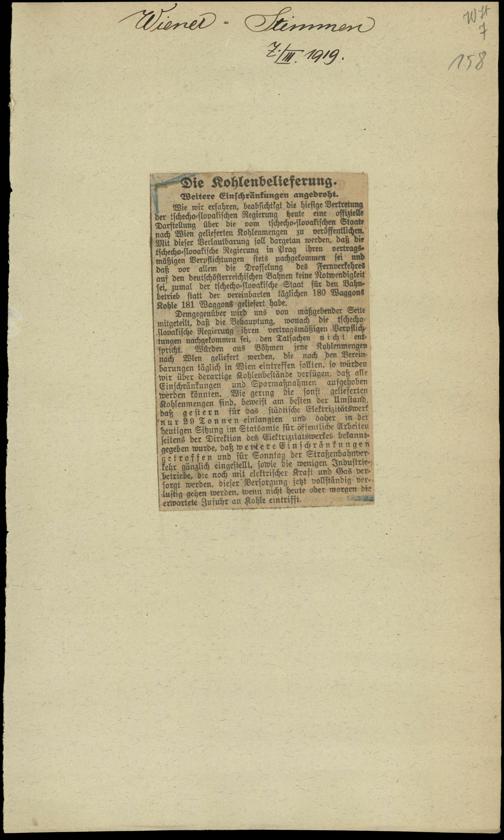 Wiener - Stimmen
7./III. 1919.
7
158
Die Kohlenbelieferung.
Weitere Einschränkungen angedroht.
Wie wir erfahren, beabsichtigt die hiesige Vertretung
der tschecho-slovakischen Regierung heute eine offizielle
Darstellung über die vom tschecho-slovakischen Staate
nach Wien gelieferten Kohlenmengen zu veröffentlichen.
Mit dieser Verlautbarung soll dargetan werden, daß die
tschecho-slovakische Regierung in Prag ihren vertrags-
mäßigen Verpflichtungen stets nachgekommen sei und
daß vor allem die Drosselung des Fernverkehres
auf den deutschösterreichischen Bahnen keine Notwendigkeit
sei, zumal der tschecho-slovakische Staat für den Bahn-
betrieb statt der vereinbarten täglichen 180 Waggons
Kohle 181 Waggons geliefert habe.
Demgegenüber wird uns von maßgebender Seite
mitgeteilt, daß die Behauptung, wonach die tschecho-
slovakische Regierung ihren vertragsmäßigen Verpflich-
tungen nachgekommen sei, den Tatsachen nicht ent-
spricht. Würden aus Böhmen jene Kohlenmengen
nach Wien geliefert werden, die nach den Verein-
barungen täglich in Wien eintreffen sollten, so würden
wir über derartige Kohlenbestände verfügen, daß alle
Einschränkungen und Sparmaßnahmen aufgehoben
werden könnten. Wie gering die sonst gelieferten
Kohlenmengen sind, beweist am besten der Umstand,
daß gestern für das städtische Elektrizitätswerk
nur 29 Tonnen einlangten und daher in der
heutigen Sitzung im Staatsamte für öffentliche Arbeiten
seitens der Direktion des Elektrizitätswerkes bekannt-
gegeben wurde, daß weitere Einschränkungen
getroffen und für Sonntag der Straßenbahnver-
kehr gänzlich eingestellt, sowie die wenigen Industrie-
betriebe, die noch mit elektrischer Kraft und Gas ver-
sorgt werden, dieser Versorgung jetzt vollständig ver-
lustig gehen werden, wenn nicht heute oder morgen die
erwartete Zufuhr an Kohle eintrifft.